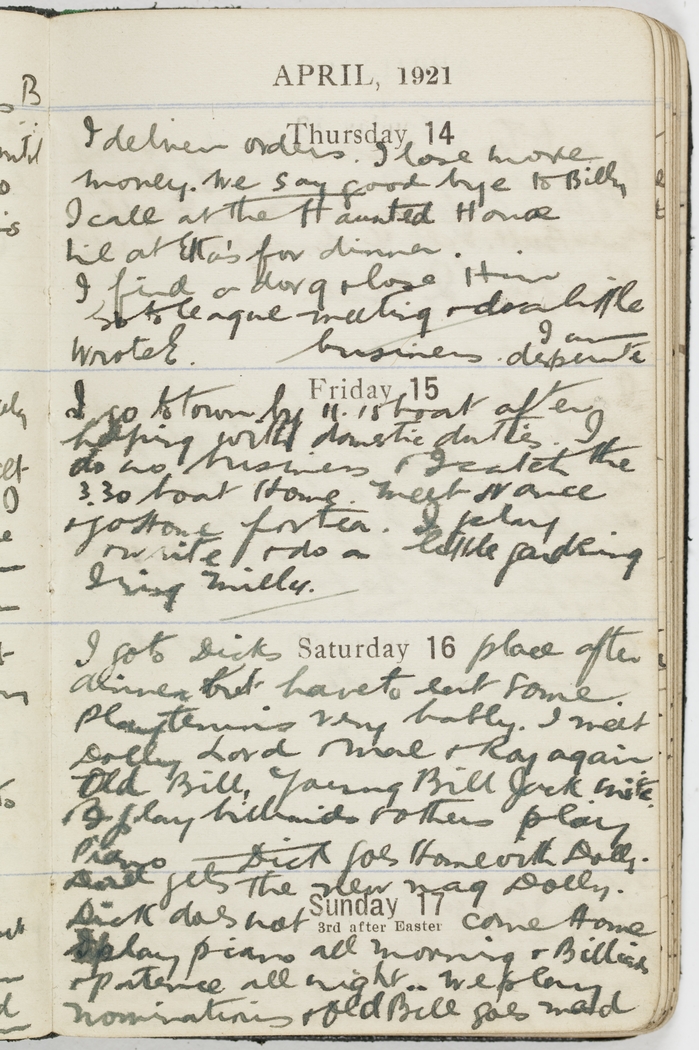 APRIL, 1921
Thursday 14
I deliver orders. I lose more
money. We say good bye to Billy
I call at the Haunted House
till at Etta's for dinner.
I find a dorg & lose Him
Go to league meeting & do a little
Wrote E. business. I am desperate
Friday 15
I go to town by 11.15 boat after
helping with domestic duties. I
do no business & I catch the
3.30 boat Home. Meet Nance
& go Home for tea. I play
& write & do a little gardening
I ring Milly.
Saturday 16
I go to Dicks place after
dinner but have to eat some.
Play tennis very badly. I meet
Dolly Lord & Mal & Ray again
Old Bill, Young Bill Jack
& I play billiards & others play
Piano Dick goes Home with Dolly.
Dad gets the new mag Dolly.
Sunday 17
3rd after Easter
Dick does not come Home
I play piano all morning & Billiards
& Patience all night.. We play
nominations & Old Bill goes mad
B